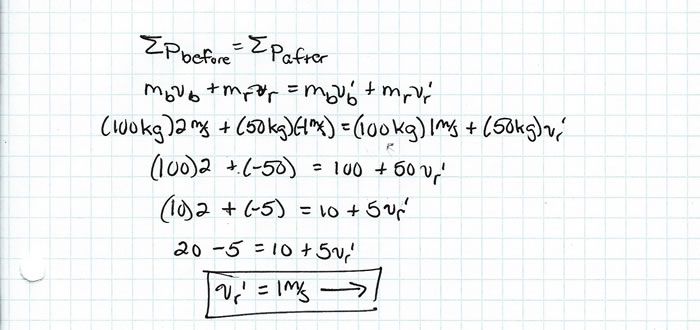 Σp before = Σp after
m_b v_b + m_r v_r = m_b v_b' + m_r v_r'
(100kg)2 m/s + (50kg)(-1 m/s) = (100kg) 1 m/s + (50kg) v_r'
(100)2 + (-50) = 100 + 50 v_r'
(10)2 + (-5) = 10 + 5 v_r'
20 - 5 = 10 + 5 v_r'
v_r' = 1 m/s →